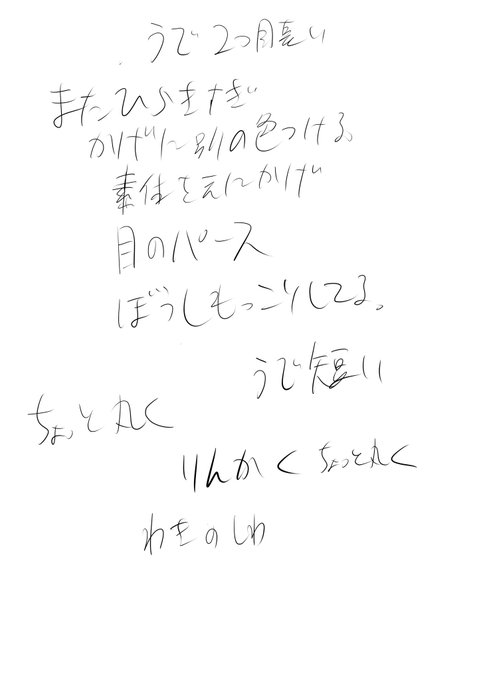 うで2つ目長い
またひらきすぎ
かげに別の色つける。
素体を元にかげ
目のパース
ぼうしもっこりしてる。
うで短い
ちょっと丸く
りんかくちょっと丸く
わきのしわ